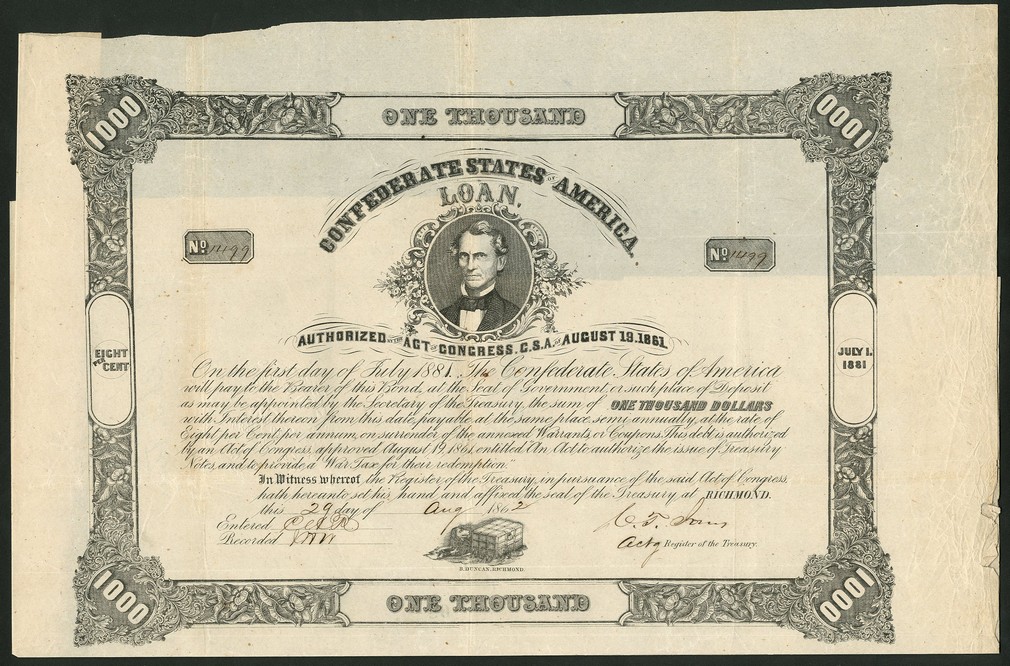 1000
ONE THOUSAND
1000
CONFEDERATE STATES OF AMERICA.
LOAN.
No 1499
No 1499
AUTHORIZED BY THE ACT OF CONGRESS. C.S.A. OF AUGUST 19.1861.
EIGHT PER CENT
JULY 1. 1881
On the first day of July 1881, The Confederate States of America
will pay to the Bearer of this Bond, at the Seat of Government, or such place of Deposit
as may be appointed by the Secretary of the Treasury, the sum of ONE THOUSAND DOLLARS
with Interest thereon from this date, payable at the same place semi-annually, at the rate of
Eight per Cent, per annum, on surrender of the annexed Warrants, or Coupons. This debt is authorized
by an Act of Congress, approved August 19, 1861, entitled "An Act to authorize the issue of Treasury
Notes, and to provide a War Tax for their redemption."
In Witness whereof, the Register of the Treasury, in pursuance of the said Act of Congress,
hath hereunto set his hand and affixed the seal of the Treasury, at RICHMOND.
this 29 day of Aug 1862
Entered
Recorded
C. T. Jones
Actg Register of the Treasury.
B. DUNCAN, RICHMOND.
1000
ONE THOUSAND
1000